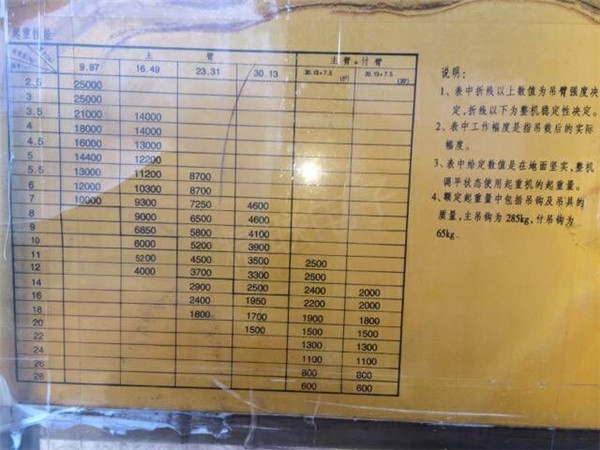 起重性能
主 臂 主臂+付臂
9.87 16.49 23.31 30.13 30.13+7.5 30.13+7.5
2.5 25000
3 25000
3.5 21000 14000
4 18000 14000
4.5 16000 13000
5 14400 12200
5.5 13000 11200 8700
6 12000 10300 8700
7 10000 9300 7250 4600
8 9000 6500 4600
9 6850 5800 4100
10 6000 5200 3900
11 5200 4500 3500 2500
12 4000 3700 3300 2500
14 2900 2500 2400 2000
16 2400 1950 2200 2000
18 1800 1700 1900 1800
20 1500 1500 1500
22 1300 1300
24 1100 1100
26 800 800
28 600 600
说明：
1、表中折线以上数值为吊臂强度决
定，折线以下为整机稳定性决定。
2、表中工作幅度是指吊载后的实际
幅度。
3、表中给定数值是在地面坚实，整机
调平状态使用起重机的起重量。
4、额定起重量中包括吊钩及吊具的
质量，主吊钩为285kg，付吊钩为
65kg.